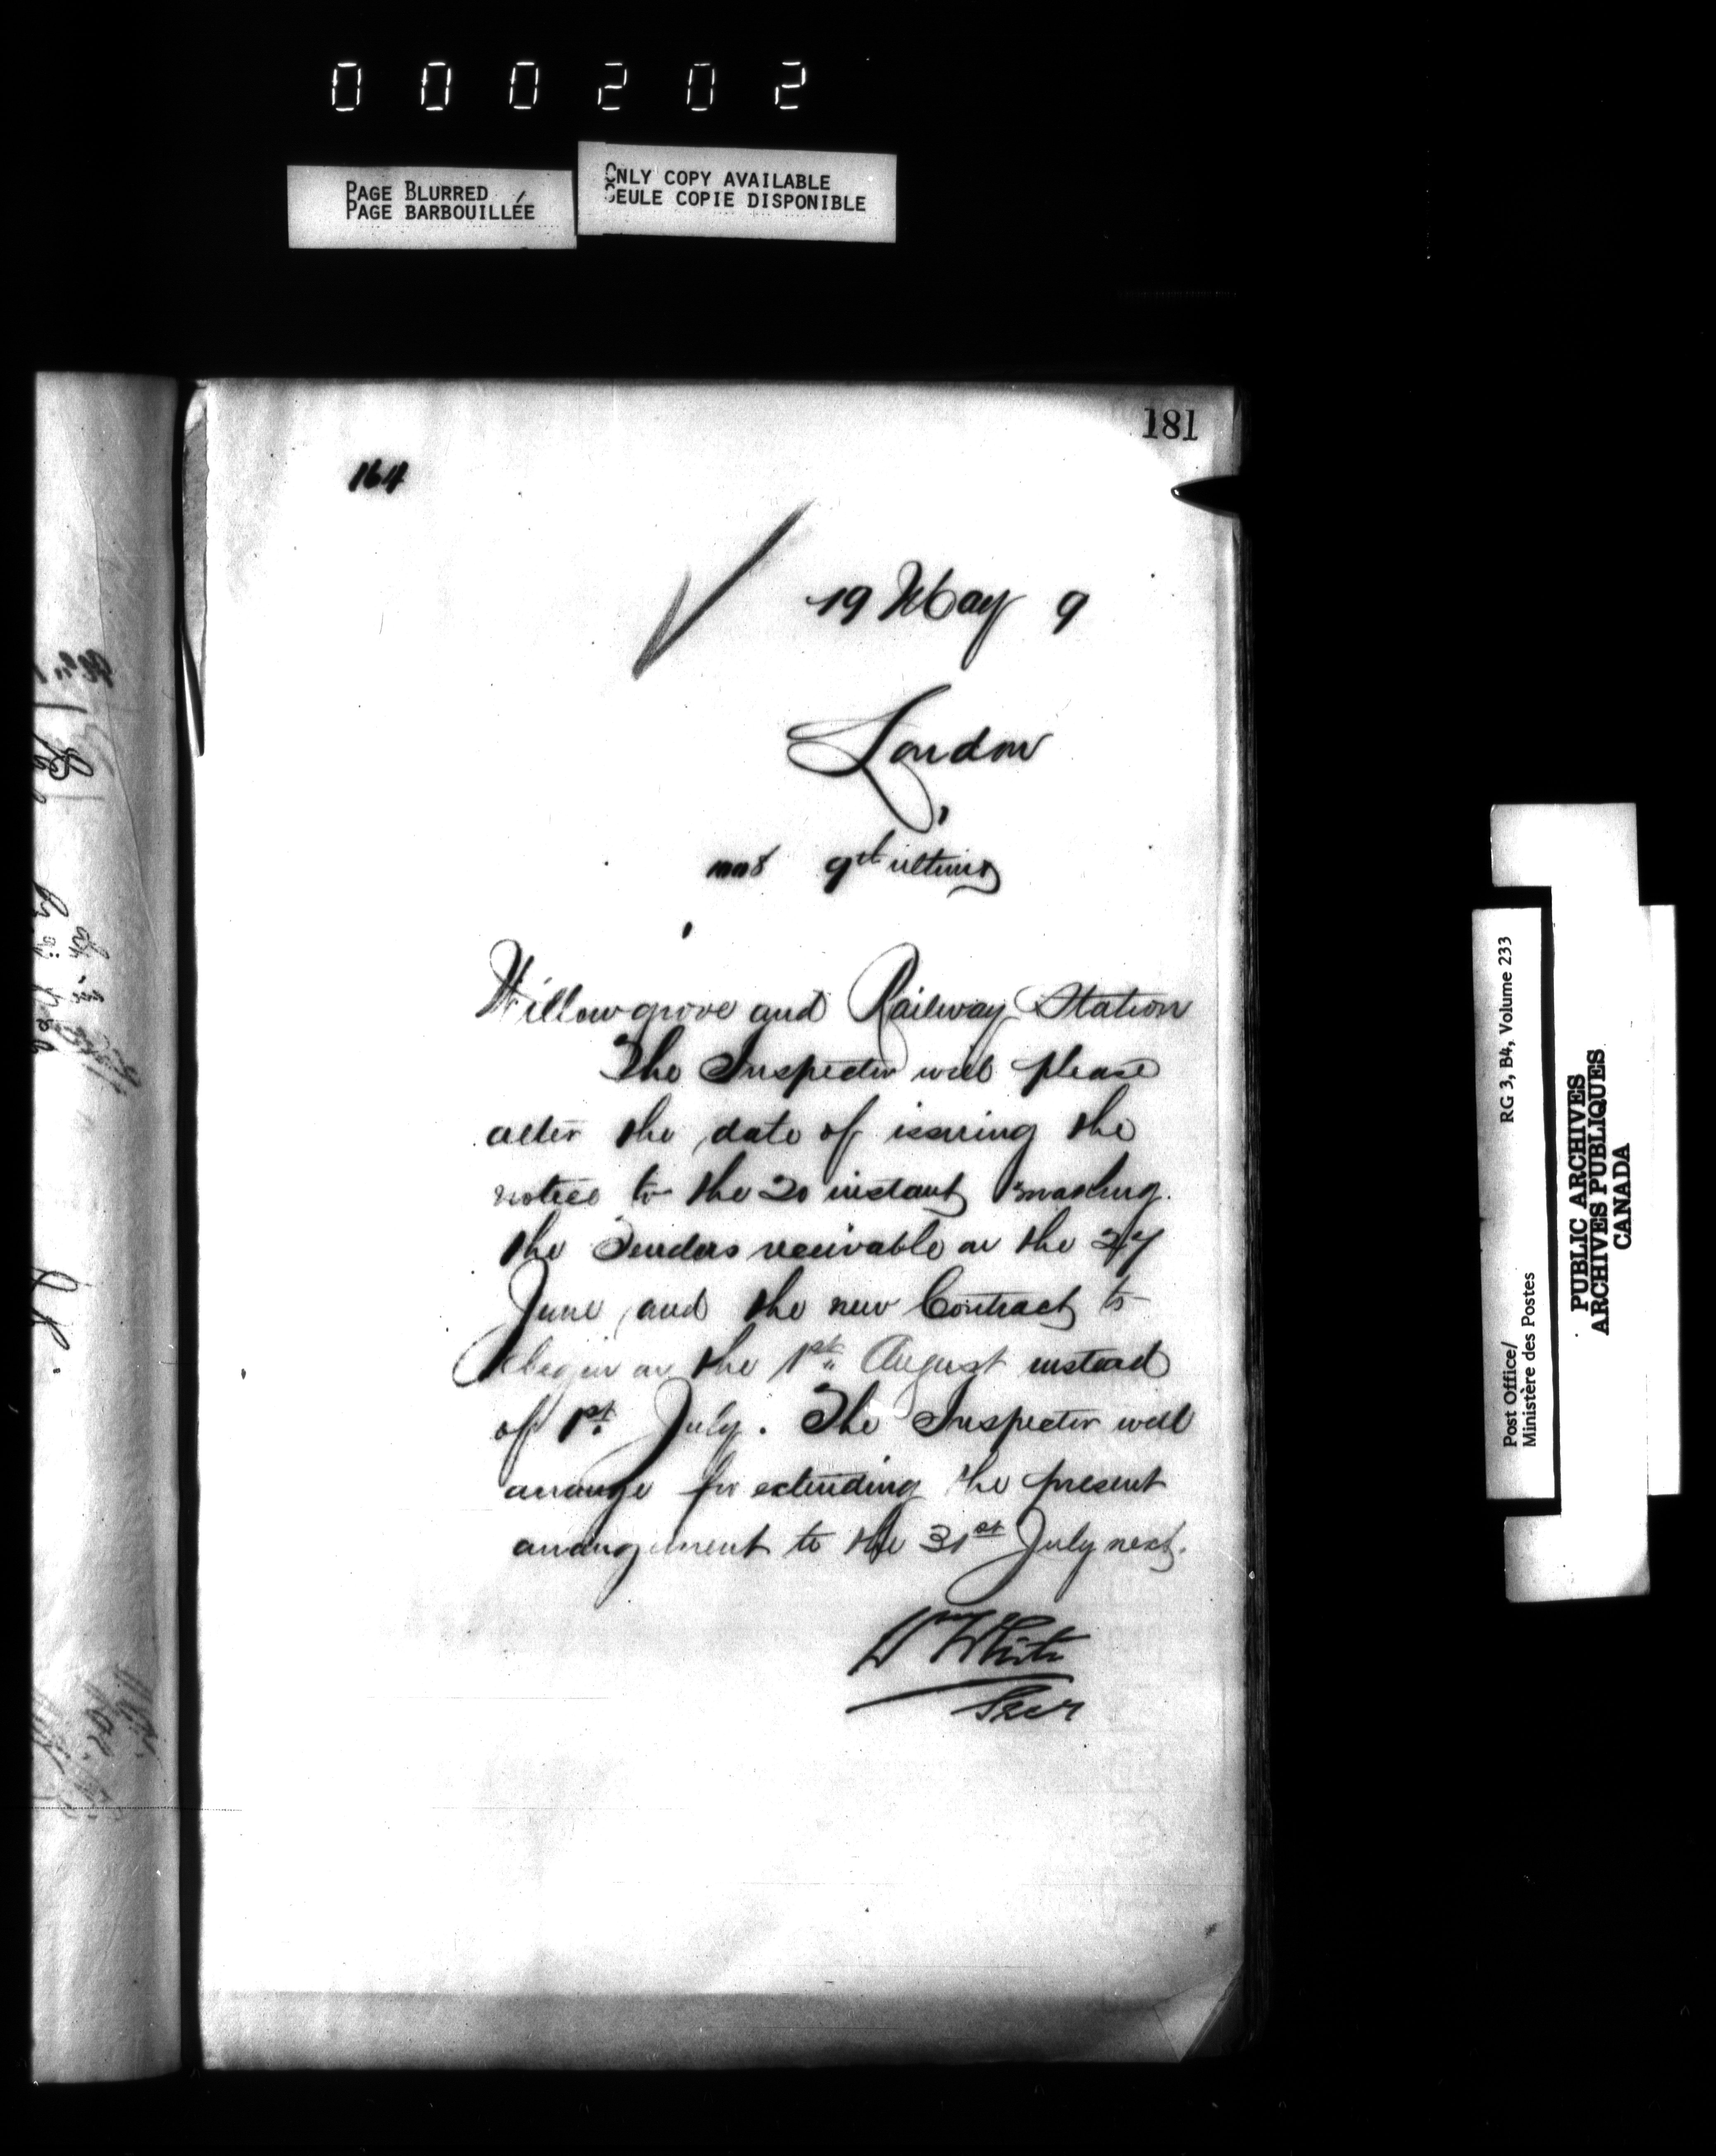 000202
PAGE BLURRED
PAGE BARBOUILLÉE
ONLY COPY AVAILABLE
SEULE COPIE DISPONIBLE
181
164
19 May 9
London
9th ultimo
Willowgrove and Railway Station
The Inspector will please
alter the date of issuing the
notice to the 20 instant making
the Tenders receivable on the 27
June and the new Contract to
begin on the 1st August instead
of 1st July. The Inspector will
arrange for extending the present
arrangement to the 31st July next.
Wm White
Secr
Post Office/
Ministère des Postes
RG 3, B4, Volume 233
PUBLIC ARCHIVES
ARCHIVES PUBLIQUES
CANADA